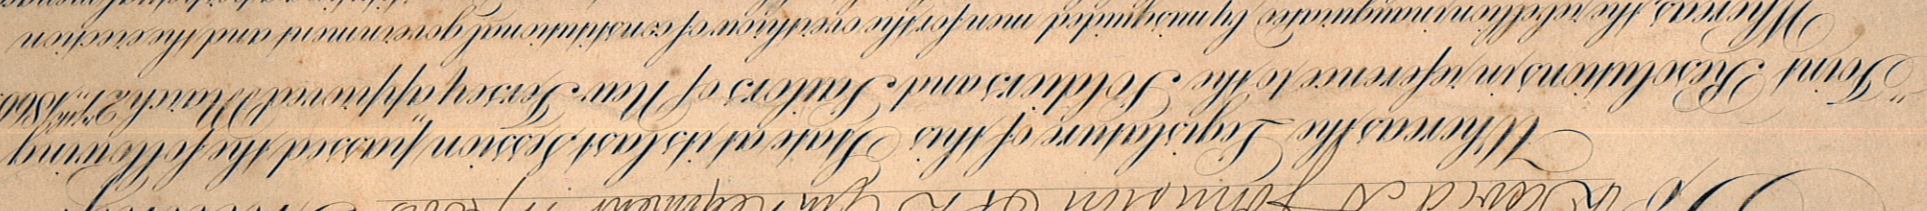 To David S Johnston
Whereas the Legislature of this State at its last Session, passed the following
"Joint Resolutions in reference to the Soldiers and Sailors of New Jersey, approved March 21st, 1866.
Whereas, the rebellion inaugurated by misguided men for the overthrow of constitutional government and the erection